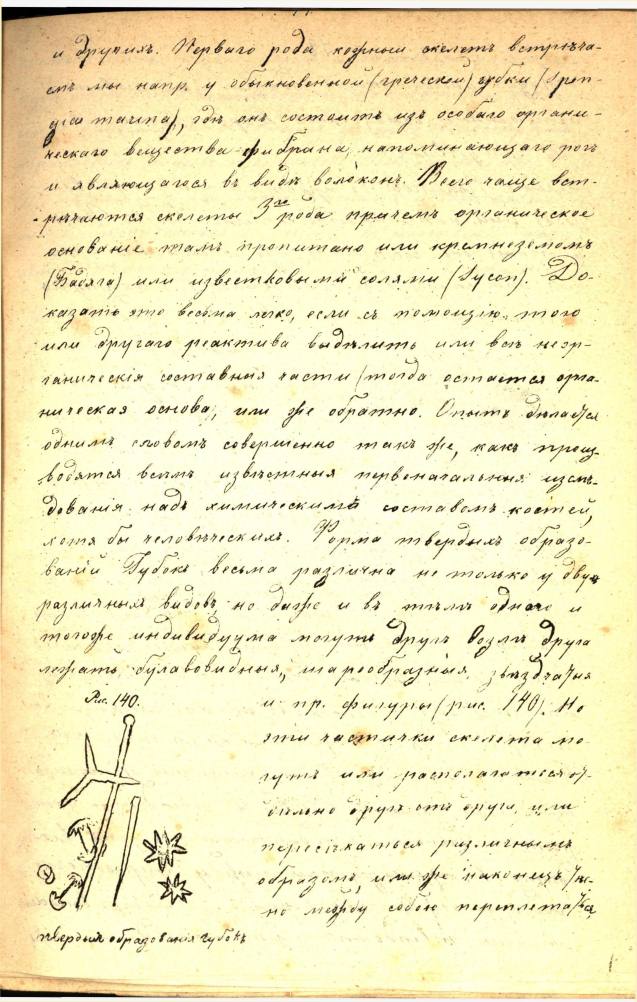 и другихъ. Перваго рода кожный скелетъ встрѣча-
емъ мы напр. у обыкновенной (греческой) губки (Spon-
gia marina), гдѣ онъ состоитъ изъ особаго органи-
ческаго вещества фибрина, напоминающаго рогъ
и являющагося въ видѣ волоконъ. Всего чаще вст-
рѣчаются скелеты 3го рода причемъ органическое
основаніе тамъ пропитано или кремнеземомъ
(Бадяга) или известковыми солями (Sycon). До-
казать это весьма легко, если съ помощію того
или другаго реактива выдѣлить или всѣ неор-
ганическія составныя части (тогда остается орга-
ническая основа, или же обратно. Опытъ дѣлается
однимъ словомъ совершенно такъ же, какъ произ-
водятся всѣмъ извѣстныя первоначальныя изслѣ-
дованія надъ химическимъ составомъ костей,
хотя бы человѣческихъ. Форма твердыхъ образо-
ваній Губокъ весьма различна не только у двухъ
различныхъ видовъ, но даже и въ тѣлѣ одного и
тогоже индивидуума могутъ другъ возлѣ друга
лежать булавовидныя, шарообразныя, звѣздчатыя
Рис. 140.
и пр. фигуры (рис. 140). Но
эти частички скелета мо-
гутъ или располагаться от-
дѣльно другъ отъ друга, или
пересѣкаться различнымъ
образомъ, или же наконецъ
но между собою переплетаться
твердыя образованія губокъ